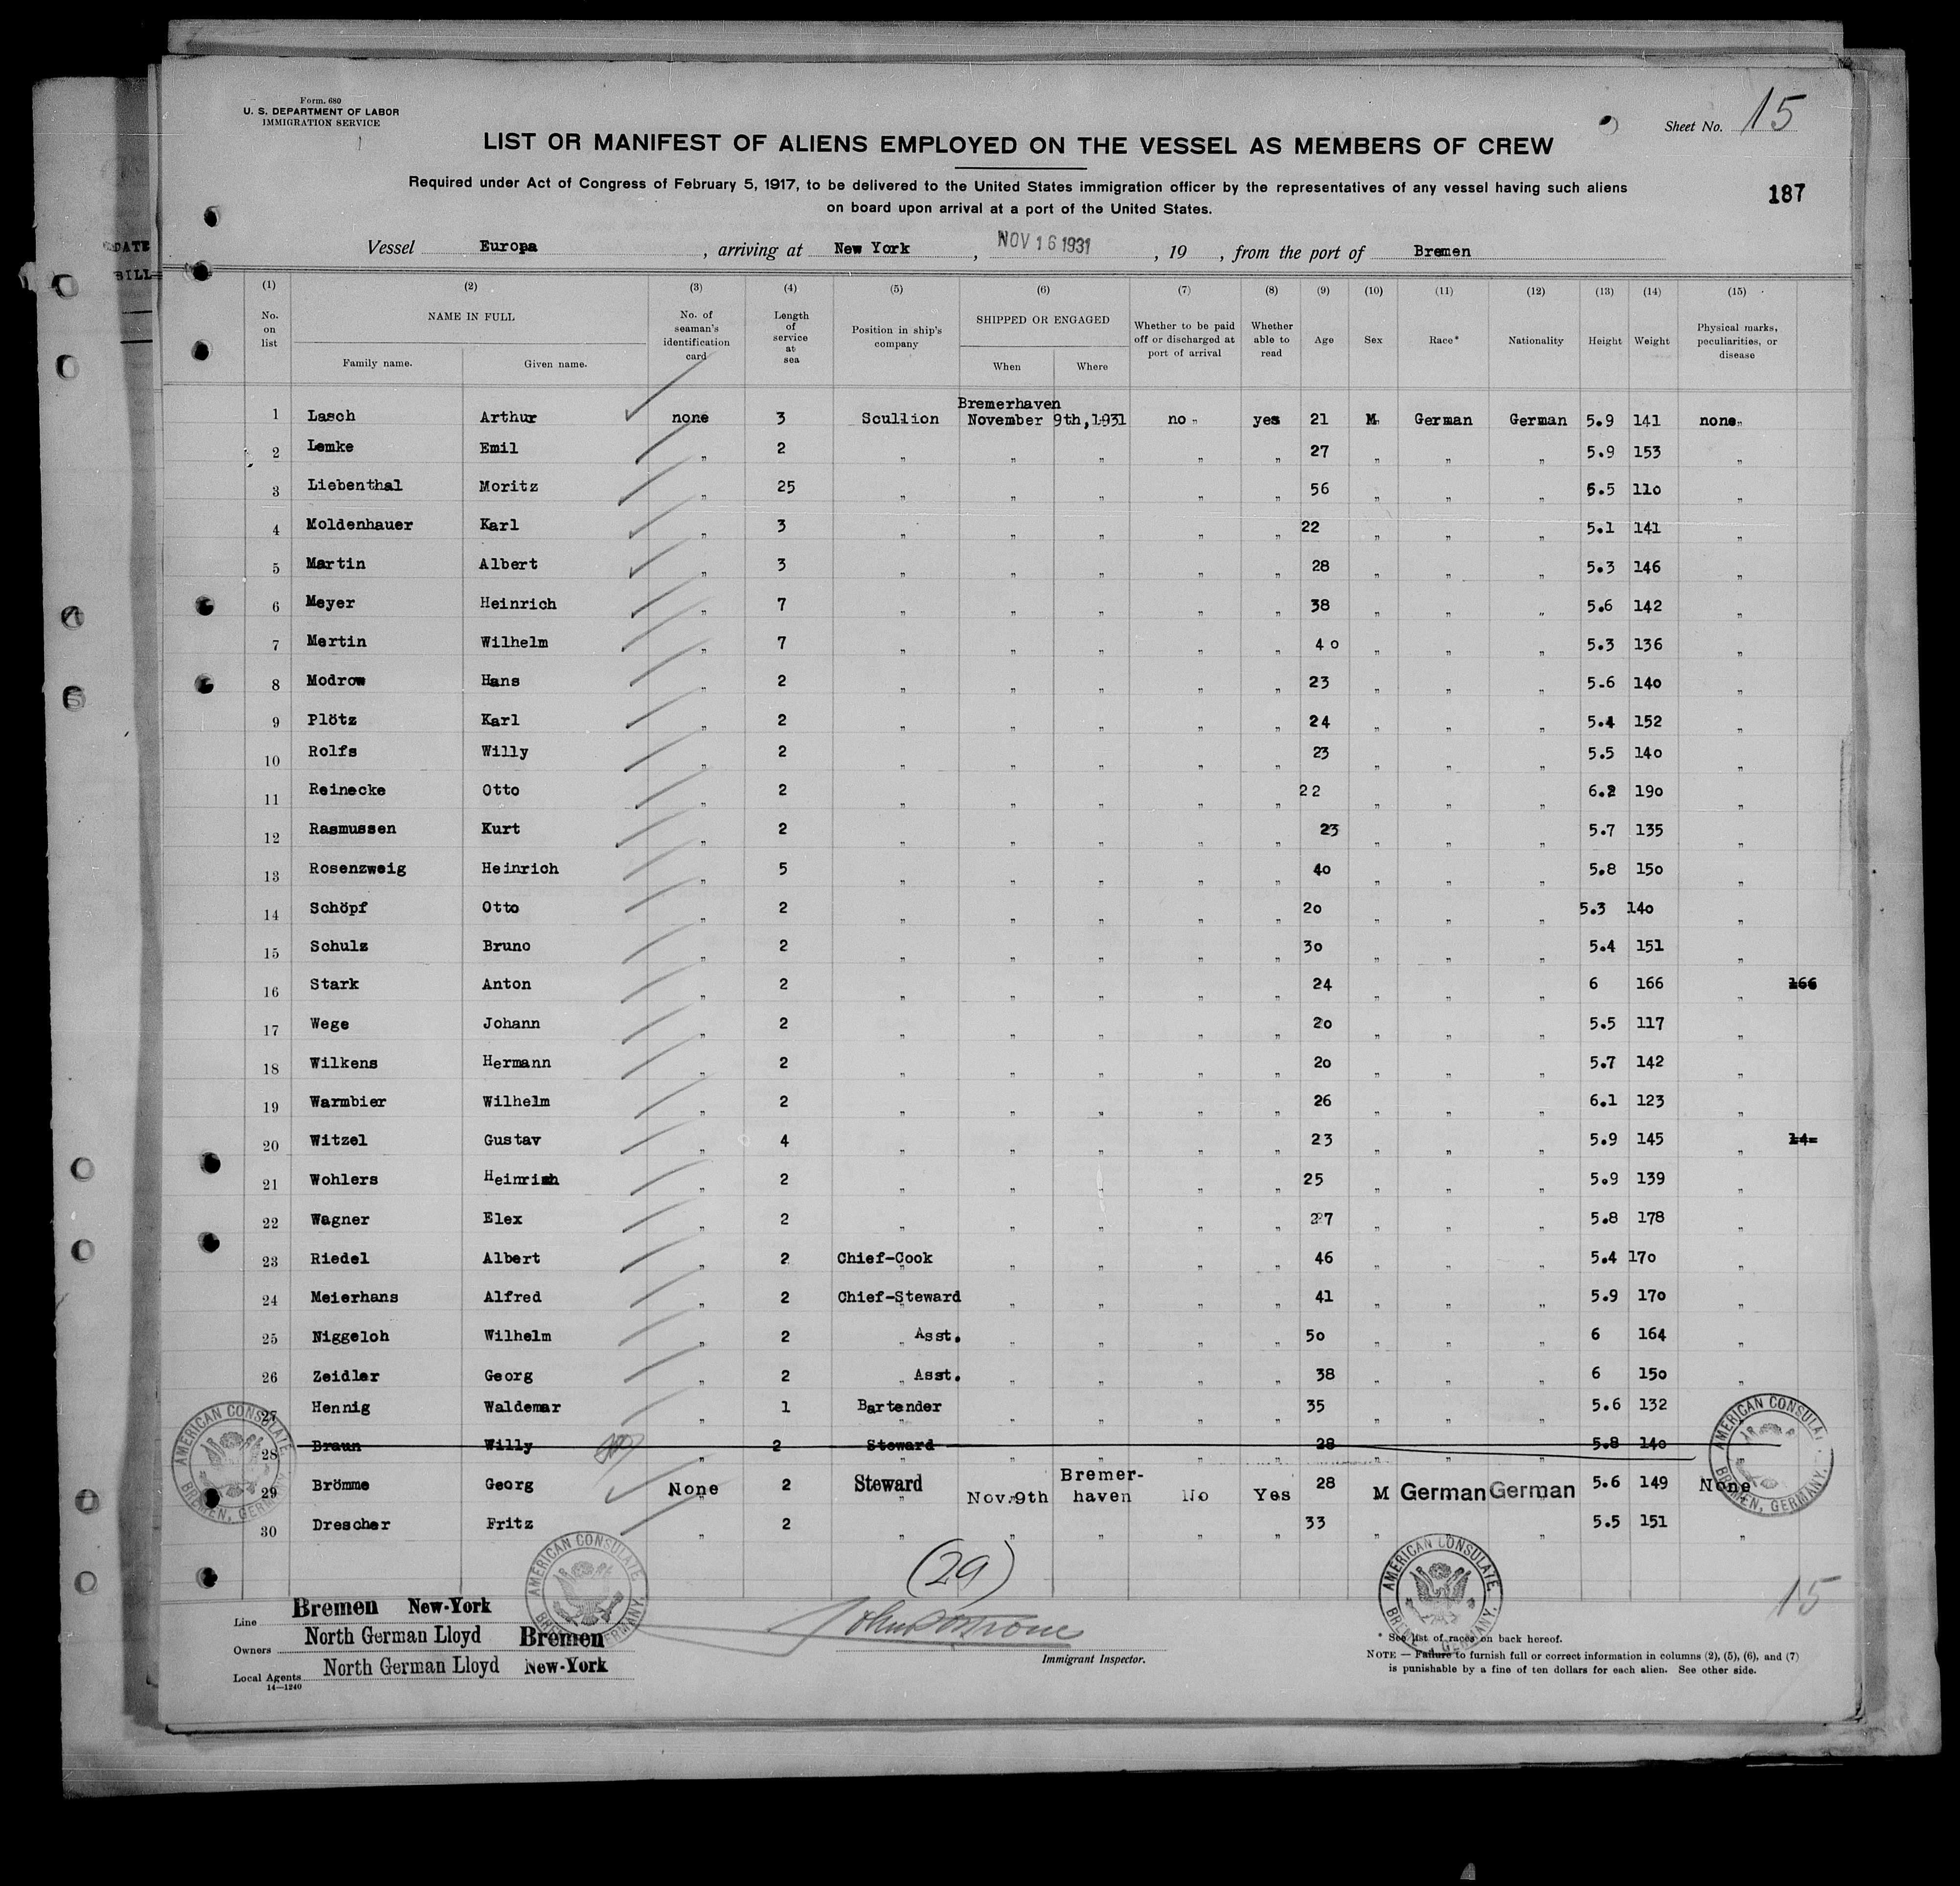 Form. 680
U. S. DEPARTMENT OF LABOR
IMMIGRATION SERVICE
Sheet No. 15
LIST OR MANIFEST OF ALIENS EMPLOYED ON THE VESSEL AS MEMBERS OF CREW
Required under Act of Congress of February 5, 1917, to be delivered to the United States immigration officer by the representatives of any vessel having such aliens
on board upon arrival at a port of the United States.
187
DATE
BILL
Vessel Europa , arriving at New York , NOV 16 1931 , 19 , from the port of Bremen
(1) (2) (3) (4) (5) (6) (7) (8) (9) (10) (11) (12) (13) (14) (15)
No. on list NAME IN FULL Family name. Given name. No. of seaman's identification card Length of service at sea Position in ship's company SHIPPED OR ENGAGED When Where Whether to be paid off or discharged at port of arrival Whether able to read Age Sex Race* Nationality Height Weight Physical marks, peculiarities, or disease
Bremerhaven
1 Lasch Arthur none 3 Scullion November 9th,1931 no yes 21 M German German 5.9 141 none
2 Lemke Emil " 2 " " " " " 27 " " " 5.9 153 "
3 Liebenthal Moritz " 25 " " " " " 56 " " " 5.5 110 "
4 Moldenhauer Karl " 3 " " " " " 22 " " " 5.1 141 "
5 Martin Albert " 3 " " " " " 28 " " " 5.3 146 "
6 Meyer Heinrich " 7 " " " " " 38 " " " 5.6 142 "
7 Mertin Wilhelm " 7 " " " " " 40 " " " 5.3 136 "
8 Modrow Hans " 2 " " " " " 23 " " " 5.6 140 "
9 Plötz Karl " 2 " " " " " 24 " " " 5.4 152 "
10 Rolfs Willy " 2 " " " " " 23 " " " 5.5 140 "
11 Reinecke Otto " 2 " " " " " 22 " " " 6.2 190 "
12 Rasmussen Kurt " 2 " " " " " 23 " " " 5.7 135 "
13 Rosenzweig Heinrich " 5 " " " " " 40 " " " 5.8 150 "
14 Schöpf Otto " 2 " " " " " 20 " " " 5.3 140 "
15 Schulz Bruno " 2 " " " " " 30 " " " 5.4 151 "
16 Stark Anton " 2 " " " " " 24 " " " 6 166 " 166
17 Wege Johann " 2 " " " " " 20 " " " 5.5 117 "
18 Wilkens Hermann " 2 " " " " " 20 " " " 5.7 142 "
19 Warmbier Wilhelm " 2 " " " " " 26 " " " 6.1 123 "
20 Witzel Gustav " 4 " " " " " 23 " " " 5.9 145 " 14-
21 Wohlers Heinrich " 2 " " " " " 25 " " " 5.9 139 "
22 Wagner Elex " 2 " " " " " 27 " " " 5.8 178 "
23 Riedel Albert " 2 Chief-Cook " " " " 46 " " " 5.4 170 "
24 Meierhans Alfred " 2 Chief-Steward " " " " 41 " " " 5.9 170 "
25 Niggeloh Wilhelm " 2 " Asst. " " " " 50 " " " 6 164 "
26 Zeidler Georg " 2 " Asst. " " " " 38 " " " 6 150 "
27 Hennig Waldemar " 1 Bartender " " " " 35 " " " 5.6 132 "
28 Braun Willy " 2 Steward " " " " 28 " " " 5.8 140 "
29 Brömme Georg None 2 Steward Nov.9th Bremer-haven No Yes 28 M German German 5.6 149 None
30 Drescher Fritz " 2 " " " " " 33 " " " 5.5 151 "
AMERICAN CONSULATE. BREMEN, GERMANY.
AMERICAN CONSULATE. BREMEN, GERMANY.
AMERICAN CONSULATE. BREMEN, GERMANY.
AMERICAN CONSULATE. BREMEN, GERMANY.
(29)
15
Line Bremen New-York
Owners North German Lloyd Bremen
Local Agents North German Lloyd New-York
14—1240
Immigrant Inspector.
* See list of races on back hereof.
NOTE — Failure to furnish full or correct information in columns (2), (5), (6), and (7)
is punishable by a fine of ten dollars for each alien. See other side.